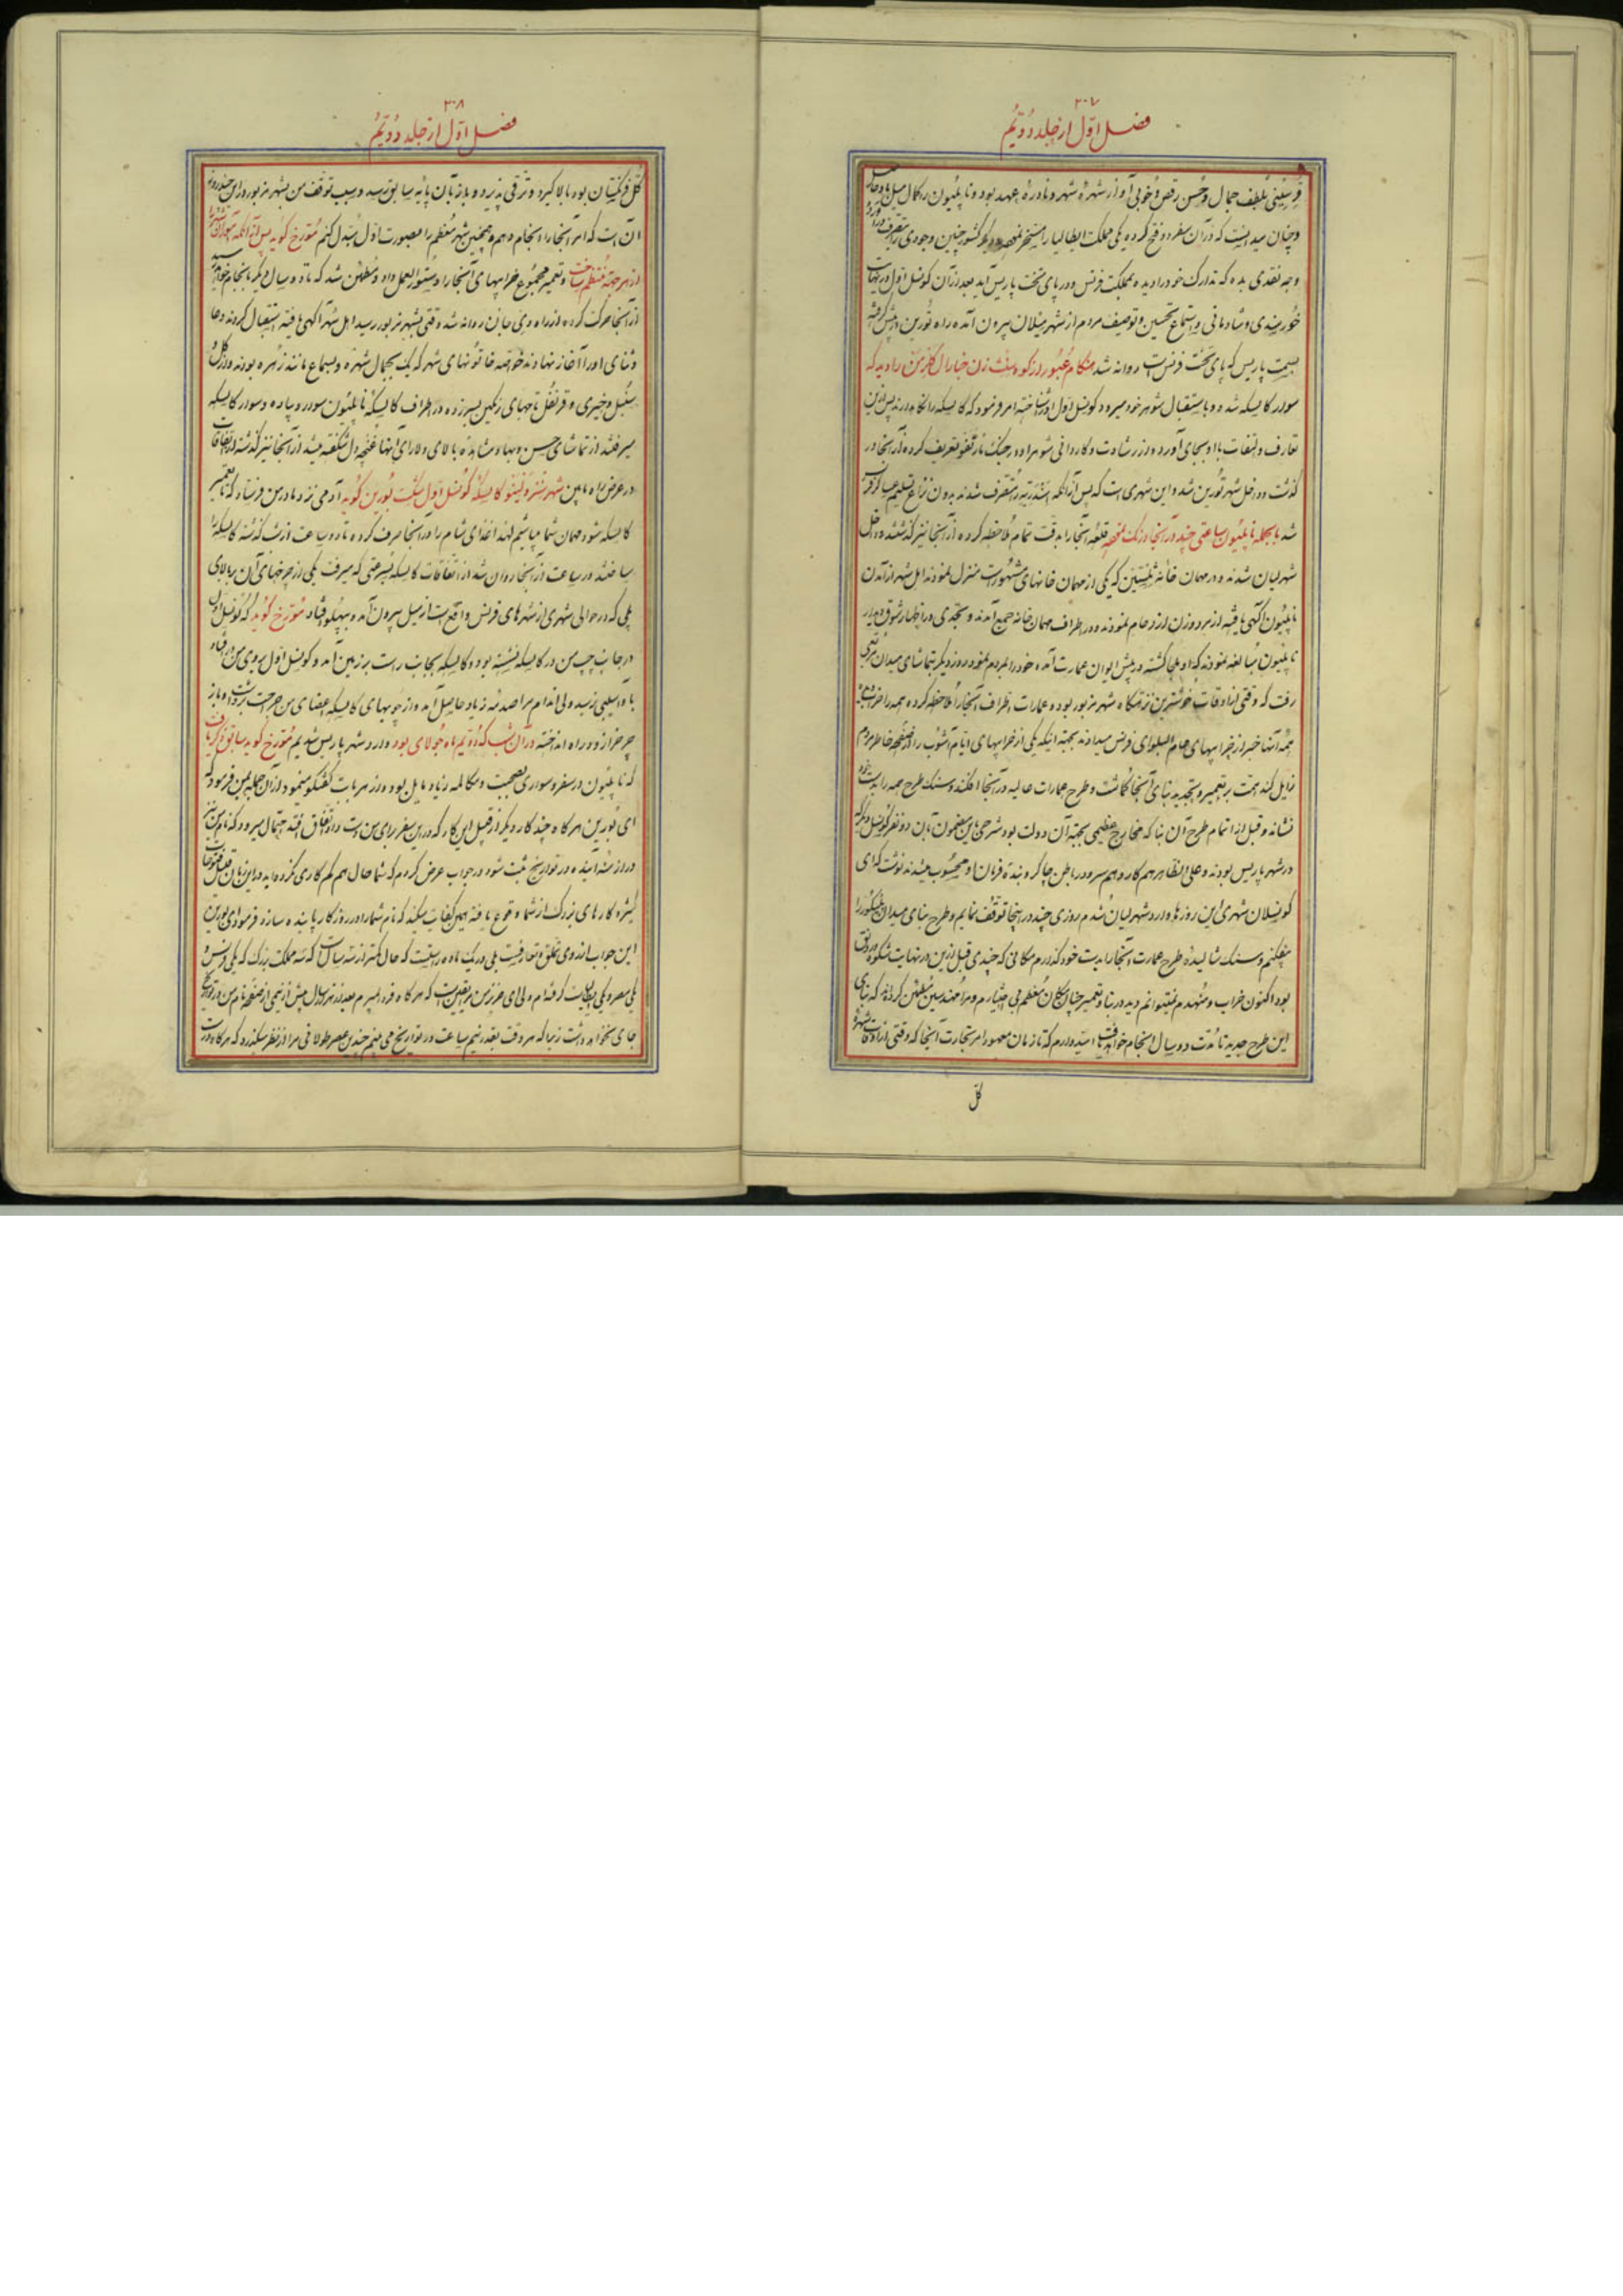 ۳۰۷
فصل اوّل از جلد دُویّم
جمال و حُسن رقص و خوبی آواز شهرهٔ شهر و نادرهٔ عهد بود و ناپلیُون
و چنان میدانست که در آن سفر دو فتح کرده یکی مملکت ایطالیا را مسخر نموده دیگر کشور چنین وجودی را
وجه نقدی بده که تدارک خود را دیده بمملکت فرنس و در پای تخت پاریس آید بعد از آن کونسل اوّل در نهایت
خُورسندی و شادمانی و استماع تحسین و توصیف مردم از شهر میلان بیرون آمده راه تُورین در پیش گرفته
بسمت پاریس که پای تخت فرنس است روانه شد هنگام عُبور از کوه زن جنارال را دید که
سوار کالیسکه شده و باستقبال شوهر خود میرود کونسل اوّل او را شناخته امر فرمود که کالیسکه را
تعارف و التفات با او بجای آورد و از رشادت و کاردانی شوهر او در جنک تعریف کرده از آنجا در
گذشت و داخل شهر تُورین شد و این شهری است که پس از آنکه متصرف شدند بدون نزاع تسلیم
شد بالجمله ناپلیُون ساعتی چند در آنجا درنک نموده قلعهٔ آنجا را بدقت تمام ملاحظه کرده از آنجا نیز گذشته داخل
شهر لیان شدند و در مهمان خانهٔ که یکی از مهمان خانهای مشهُور است منزل نمودند اهل شهر از آمدن
ناپلیُون آگهی یافته از مرد و زن ازدحام نمودند و در اطراف مهمان خانه جمع آمدند و بحدی در اظهار شوق دیدار
ناپلیُون مبالغه نمودند که او ملجأ گشته در پیش ایوان عمارت آمده خود را بمردم نمود و روز دیگر بتماشای میدان
رفت که وقتی از اوقات خوشترین نزهتگاه شهر مزبور بود و عمارات اطراف آنجا را ملاحظه کرده همه را خراب
همهٔ آنها خبر از خرابیهای عام البلوای فرنس میدادند بجهة اینکه یکی از خرابیهای ایّام آشوب را از صفحهٔ خاطر مردم
زایل کند همت بر تعمیر و تجدید بنای آنجا گماشت و طرح عمارات عالیه در آنجا افکند و سنک طرح همه را بدست خود
نشاند و قبل از اتمام طرح آن بنا که مخارج عظیمی بجهة آن دولت بود شرحی باین مضمون بآن دو نفر کونسل دیگر که
در شهر پاریس بودند و علی الظاهر همکار و همسر و در باطن چاکر و بندهٔ فرمان او محسُوب میشدند نوشت که ای
کونسلان شهری این روزها وارد شهر لیان شدم روزی چند در اینجا توقف نمایم و طرح بنای میدان را
بیفکنم و سنک شالیدهٔ طرح عمارت آنجا را بدست خود گذارم مکانی که چندی قبل ازین در نهایت شکوه و رونق
بود اکنون خراب و منهدم نمیتوانم دید در بنا و تعمیر چنان مکان معظم بی اختیارم و مرا مهندسین مطمئن کرده‌اند که بنای
این طرح جدید تا مُدت دو سال انجام خواهد یافت امید دارم که تا زمان معهود امر تجارت آنجا که وقتی از اوقات شهرهٔ
کل
۳۰۸
فصل اوّل از جلد دُویّم
کل فرنکستان بود بالا گیرد و ترقی پذیرد و باز بآن پایهٔ سابق رسد و سبب توقف من بشهر مزبور در این چند روزه
آن است که امر آنجا را انجام دهم و همچنین شهر معظم را بصورت اوّل مُبدل کنم مُورّخ گوید پس از آنکه
از هر جهة منتظم ساخت و تعمیر مجمُوع خرابیهای آنجا را دستور العمل داد و مُطمئن شد که تا دو سال دیگر بانجام خواهد رسید
از آنجا حرکت کرده از راه دی جان روانه شد وقتی بشهر مزبور رسید اهل شهر آگهی یافته استقبال کردند و دعا
و ثنای او را آغاز نهادند خواصه خاتونهای شهر که یک یک بجمال شهره و بسماع مانند زُهره بودند و از گل و
سُنبل و خیری و قرنفل تاجهای رنگین بسر زده در اطراف کالیسکهٔ ناپلیُون سواره و پیاده و سوار کالیسکه
میرفتند از تماشای حسن و بهاء و مشاهدهٔ بالای دلارای آنها غنچهٔ دل شکفته میشد از آنجا نیز گذشته از اتفاقات
در عرض راه مابین شهر کالیسکهٔ کونسل اوّل شکست بُورین گوید آدمی نزد مادر من فرستاد که تا تعمیر
کالیسکه شود مهمان شما میباشیم لهذا غذای شام را در آنجا صرف کرده تا دو ساعت از شب گذشته کالیسکه را
ساختند در ساعت از آنجا روان شد از اتفاقات کالیسکه بسرعتی که میرفت یکی از چرخهای آن بر بالای
پلی که در حوالی شهری از شهرهای فرنس واقع است از میل بیرون آمد و به پهلو افتاد مُورّخ گوید که کونسل اوّل
در جانب چپ من در کالیسکه نشسته بود و کالیسکه بجانب راست بر زمین آمد و کونسل اوّل بروی من افتاد
باو آسیبی نرسید ولی اندام مرا صدمهٔ زیاد حاصل آمد و از چوبهای کالیسکه اعضای من جراحت برداشت و باز
چرخ را زود راه انداخته در آن شب که دُویم ماه جُولای بود وارد شهر پاریس شدیم مُورّخ گوید
که ناپلیُون در سفر و سواری بصحبت و مکالمه زیاد مایل بود و از هر باب گفتگو مینمود از آن جمله بمن فرمود که
ای بُورین هر گاه چند کار دیگر از قبیل این کار که در این سفر برای من دست داد اتفاق افتد احتمال میرود که نام من نیز
در ازمنهٔ آینده در تواریخ ثبت شود در جواب عرض کردم که شما حال هم کم کاری نکرده‌اید و
کثیره کارهای بزرک از شما وقوع یافته همین کفایت میکند که نام شما را در روزگار پاینده سازد فرمود ای بُورین
این جواب از روی تملق و تعارفست بلی در یک ماده راستست که حال کمتر از سه سال است که سه مملکت بزرک که یکی فرنس و
یکی مصر و یکی ایطالیا است گرفته‌ام ولی ای عزیز من یقین است که هر گاه فردا بمیرم بعد از ده هزار سال بیش از نیمی از صفحه نام من در تواریخ
جای نخواهد داشت زیرا که هر وقت بقدر نیم ساعت در تواریخ می بینم چندین عصر طولانی مرا از نظر میگذرد که هر گاه در